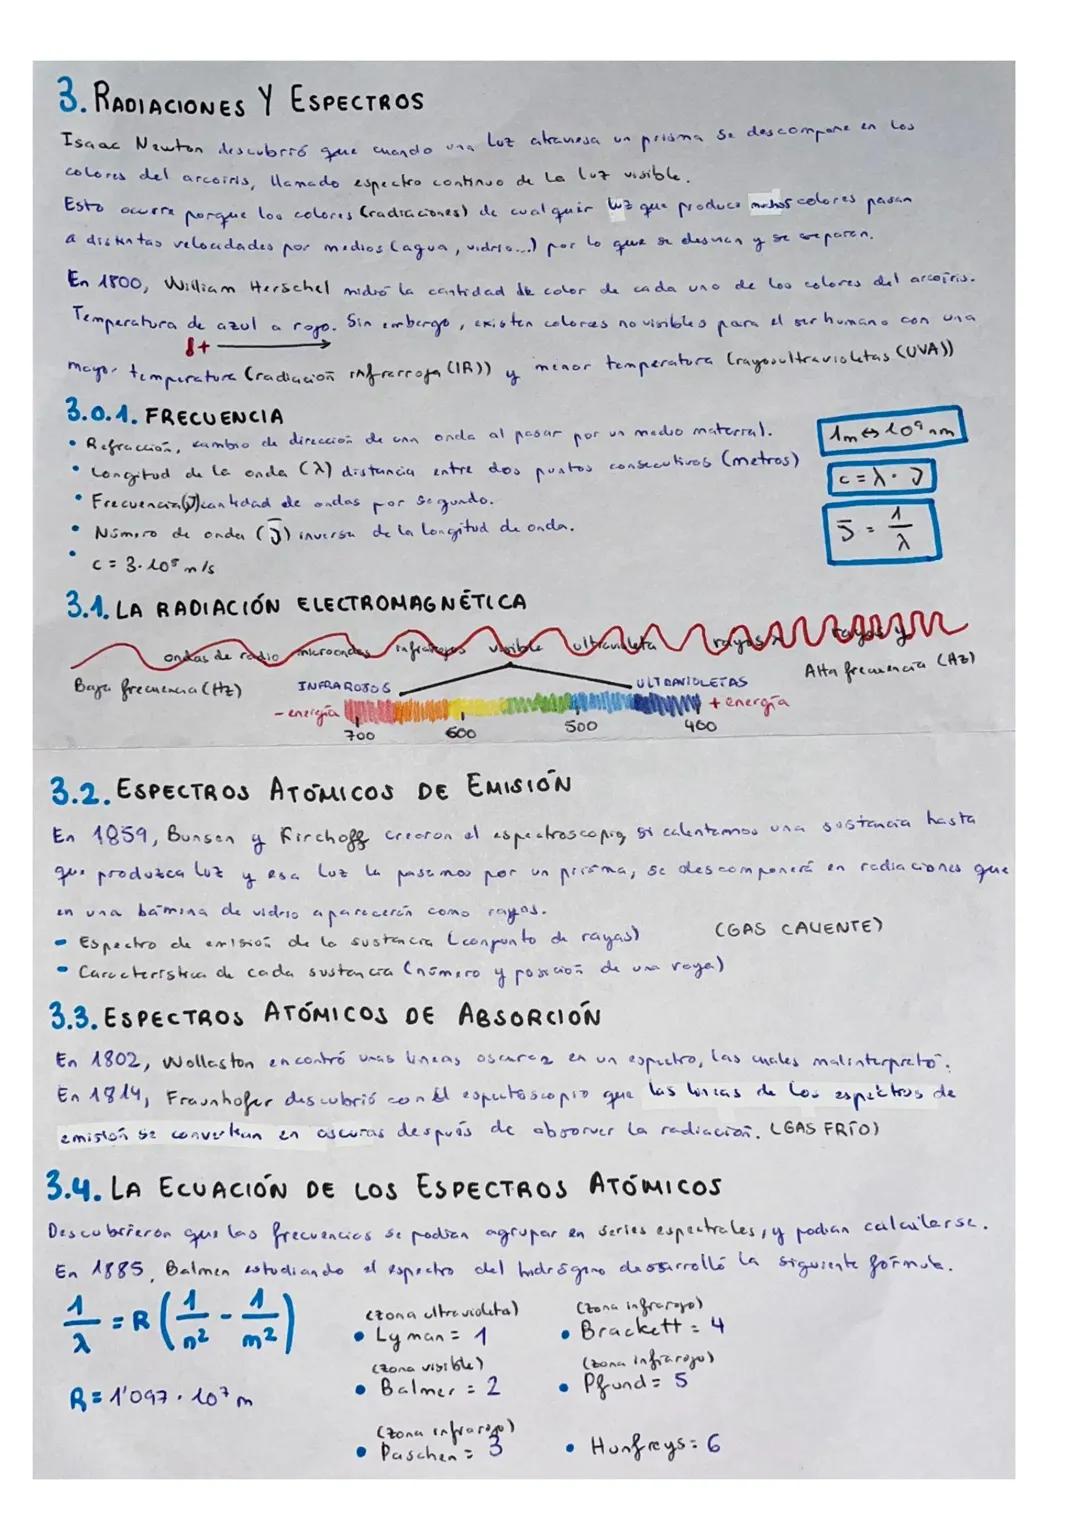 3. RADIACIONES Y ESPECTROS
Isaac Newton descubrió que cuando una luz atraviesa un prisma se descompone en los
colores del arcoiris, llamado espectro continuo de la luz visible.
Esto ocurre porque los colores (radiaciones) de cualquier luz que produce muchos colores pasan
a distintas velocidades por medios (agua, vidrio...) por lo que se desvian y se separan.
En 1800, William Herschel midió la cantidad de color de cada uno de los colores del arcoiris.
Temperatura de azul a rojo. Sin embargo, existen colores no visibles para el ser humano con una
+
mayor temperatura (radiación infrarroja (IR)) y menor temperatura (rayos ultravioletas (UVA))
3.0.1. FRECUENCIA
• Refracción, cambio de dirección de una onda al pasar por un medio material.
1m ⇔ 10⁹ nm
• Longitud de la onda (λ) distancia entre dos puntos consecutivos (metros)
c = λ · ν
• Frecuencia (ν) cantidad de ondas por segundo.
• Número de onda (ν̅) inversa de la longitud de onda.
ν̅ = 1/λ
• c = 3·10⁸ m/s
3.1. LA RADIACIÓN ELECTROMAGNÉTICA
ondas de radio microondas infrarrojos visible ultravioleta rayos x rayos γ
Baja frecuencia (Hz) INFRAROJOS ULTRAVIOLETAS Alta frecuencia (Az)
- energía + energía
700 600 500 400
3.2. ESPECTROS ATÓMICOS DE EMISIÓN
En 1859, Bunsen y Kirchoff crearon el espectroscopio, si calentamos una sustancia hasta
que produzca luz y esa luz la pasamos por un prisma, se descomponerá en radiaciones que
en una lámina de vidrio aparecerán como rayas.
- Espectro de emisión de la sustancia (conjunto de rayas) (GAS CALIENTE)
- Característica de cada sustancia (número y posición de una raya)
3.3. ESPECTROS ATÓMICOS DE ABSORCIÓN
En 1802, Wollaston encontró unas líneas oscuras en un espectro, las cuales malinterpretó.
En 1814, Fraunhofer descubrió con el espectoscopio que las líneas de los espectros de
emisión se convertian en oscuras después de absorver la radiación. (GAS FRÍO)
3.4. LA ECUACIÓN DE LOS ESPECTROS ATÓMICOS
Descubrieron que las frecuencias se podian agrupar en series espectrales, y podian calcularse.
En 1885, Balmen estudiando el espectro del hidrógeno desarrolló la siguiente fórmula.
1/λ = R (1/n² - 1/m²)
R = 1'097 · 10⁷ m
(zona ultravioleta)
• Lyman = 1
(zona visible)
• Balmer = 2
(zona infrarojo)
• Paschen = 3
(zona infrarojo)
• Brackett = 4
(zona infrarojo)
• Pfund = 5
• Hunfreys = 6